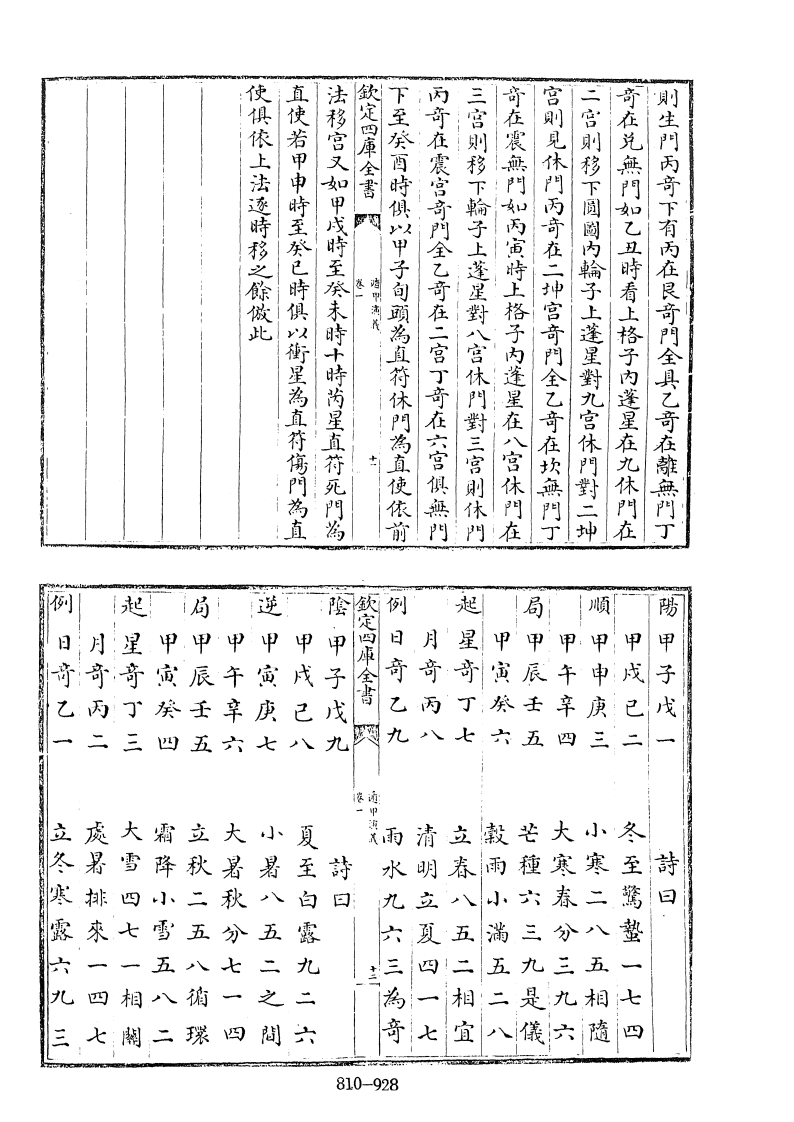 則生門丙奇下有丙在艮奇門全具乙奇在離無門丁
奇在兑無門如乙丑時看上格子内蓬星在九休門在
二宫則移下圓圖内輪子上蓬星對九宫休門對二坤
宫則見休門丙奇在二坤宫奇門全乙奇在坎無門丁
奇在震無門如丙寅時上格子内蓬星在八宫休門在
三宫則移下輪子上蓬星對八宫休門對三宫則休門
丙奇在震宫奇門全乙奇在二宫丁奇在六宫俱無門
下至癸酉時俱以甲子旬頭為直符休門為直使依前
欽定四庫全書
遁甲演義
卷一
十一
法移宫又如甲戌時至癸未時十時芮星直符死門為
直使若甲申時至癸巳時俱以衝星為直符傷門為直
使俱依上法逐時移之餘倣此
陽甲子戊一 詩曰
甲戌己二 冬至驚蟄一七四
順甲申庚三 小寒二八五相隨
甲午辛四 大寒春分三九六
局甲辰壬五 芒種六三九是儀
甲寅癸六 穀雨小滿五二八
起星奇丁七 立春八五二相宜
月奇丙八 清明立夏四一七
例日奇乙九 雨水九六三為奇
欽定四庫全書
遁甲演義
卷一
十二
陰甲子戊九 詩曰
甲戌己八 夏至白露九二六
逆甲寅庚七 小暑八五二之間
甲午辛六 大暑秋分七一四
局甲辰壬五 立秋二五八循環
甲寅癸四 霜降小雪五八二
起星奇丁三 大雪四七一相關
月奇丙二 處暑排來一四七
例日奇乙一 立冬寒露六九三
810-928